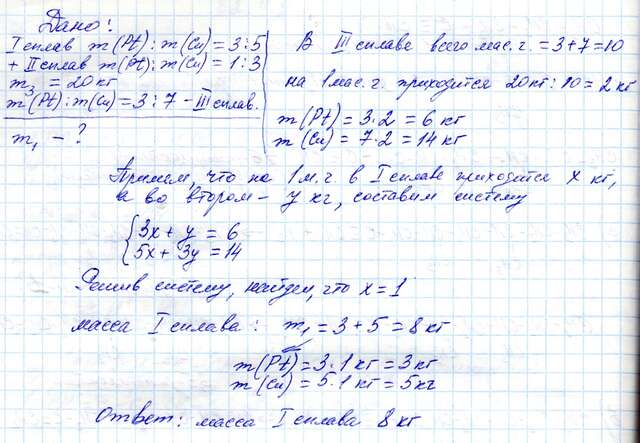 Дано:
I сплав m(Pt):m(Cu)=3:5
+ II сплав m(Pt):m(Cu)=1:3
m₃ = 20 кг
m(Pt):m(Cu)=3:7 – III сплав.
m₁ – ?
В III сплаве всего мас.ч. = 3+7=10
на 1 мас.ч. приходится 20 кг:10 = 2 кг
m(Pt) = 3·2 = 6 кг
m(Cu) = 7·2 = 14 кг
Примем, что на 1 м.ч. в I сплаве приходится x кг,
а во втором – y кг, составим систему
{3x + y = 6
5x + 3y = 14
Решив систему, найдем, что x = 1
масса I сплава: m₁ = 3+5 = 8 кг
m(Pt) = 3·1 кг = 3 кг
m(Cu) = 5·1 кг = 5 кг
Ответ: масса I сплава 8 кг